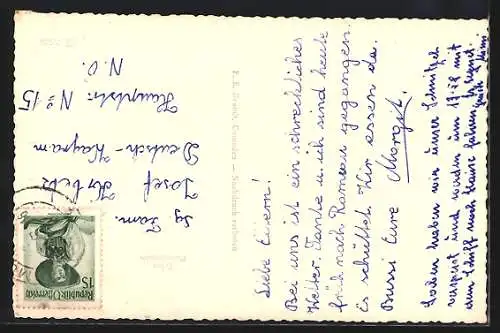 Liebe Eltern!
Bei uns ist ein schreckliches
Wetter. Tante u. ich sind heute
früh nach Ramsau gegangen.
Es schüttet. Wir essen da.
Bussi Eure
Margit.
Soeben haben wir unser Schnitzel
verspeist und werden um 17.18 mit
dem Schiff nach Hause fahren.
Fam.
Josef
Deutsch-Wagram
Hauptstr. No 15
N.Ö.
Republik Österreich
15